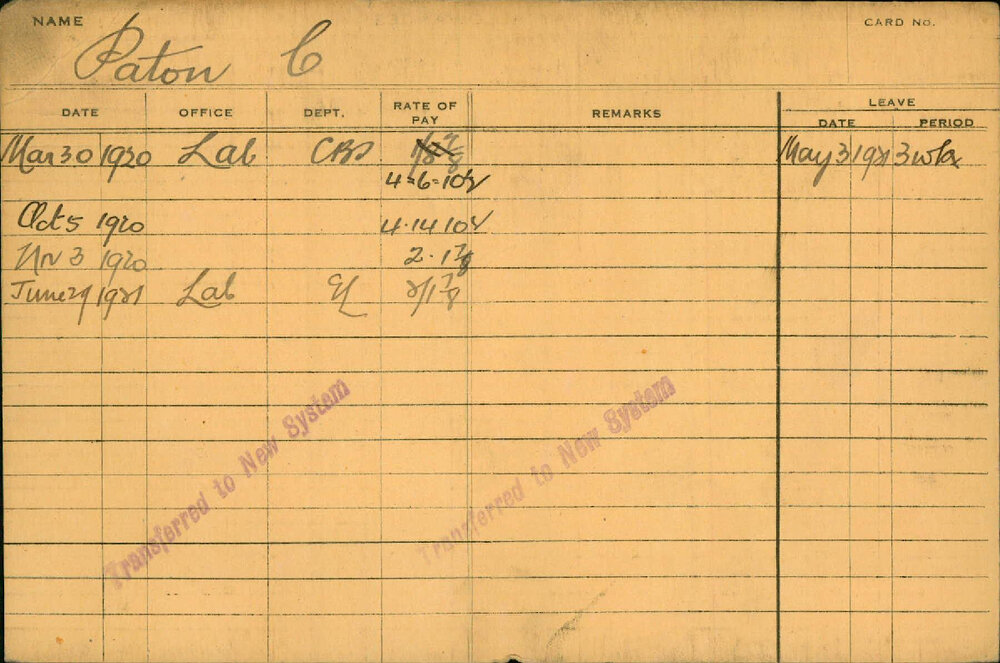 NAME
CARD No.
Paton C
DATE OFFICE DEPT. RATE OF PAY REMARKS LEAVE
DATE PERIOD
Mar 30 1920 Lab May 31 1921 3 wks
4=6=10½
Oct 5 1920 4.14 10½
Nv 3 1920 2.1⅞
June 29 1921 Lab 2/1⅞
Transferred to New System
Transferred to New System